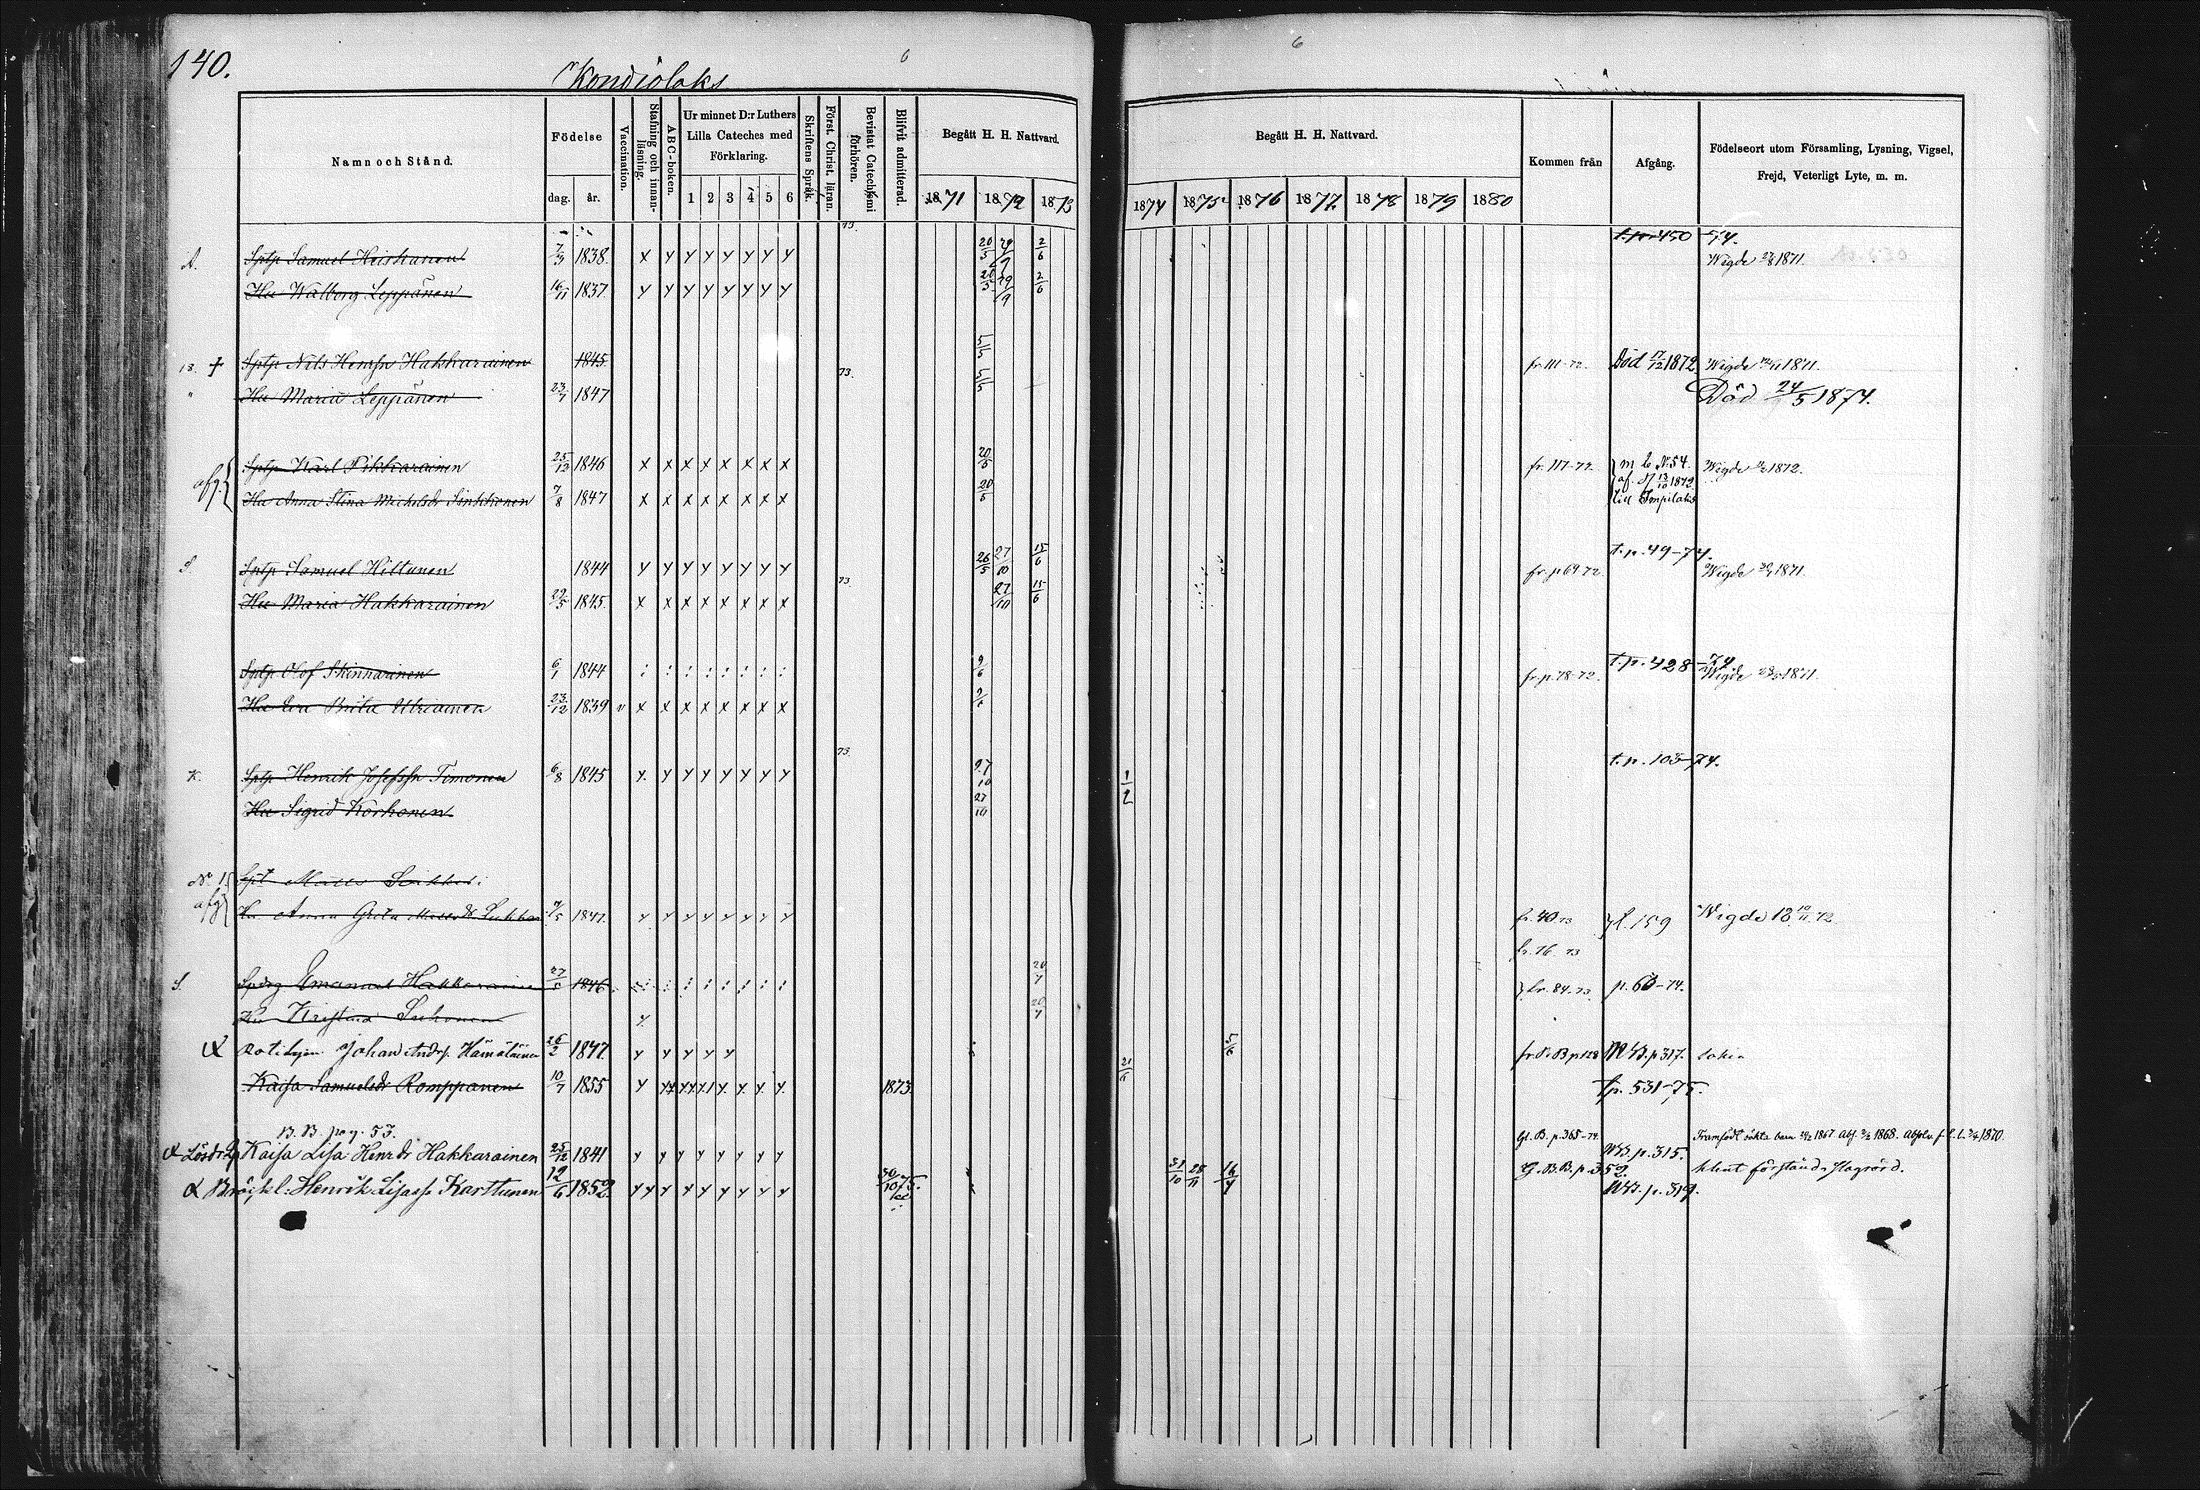 140.
Kondiolaks
6
6
Namn och Stånd.
Födelse
dag.
år.
Vaccination.
Stafning och innanläsning.
ABC-boken.
Ur minnet D:r Luthers Lilla Cateches med Förklaring.
1 2 3 4 5 6
Skriftens Språk.
Först. Christ. läran.
Bevistat Catechismi förhören.
Blifvit admitterad.
Begått H. H. Nattvard.
1871 1872 1873
Begått H. H. Nattvard.
1874 1875 1876 1877 1878 1879 1880
Kommen från
Afgång.
Födelseort utom Församling, Lysning, Vigsel, Frejd, Veterligt Lyte, m. m.
73.
Sptp Samuel Heiskanen 7/9 1838. x y y y y y y y 20/5 29/9 2/6 t. p. 450 -74.
Wigde 27/8 1871.
Hu Walborg Leppänen 16/11 1837. y y y y y y y y 20/5 29/9 2/6
Sptp Nils Henrssn Hakkarainen 1845. 5/5 fr. 111-72. Död 17/12 1872. Wigde 1871.
73.
Hu Maria Leppänen 23/7 1847 5/5 Död 24/5 1874.
afg. Sptp Karl Pikkarainen 25/12 1846 x x x x x x x x 20/5 fr. 117-72. m b N:54. Wigde 1872.
af. d. 13/10 1872
Hu Anna Stina Michelsdr Sinkkonen 7/8 1847 x x x x x x x x 20/5 till Impilaks
S. Sptp Samuel Hiltunen 1844 y y y y y y y y 26/5 27/10 15/6 fr. p 69-72. t. p. 49-74. Wigde 1871.
73
Hu Maria Hakkarainen 29/5 1845. x x x x x x x x 27/10 15/6
Sptp Olof Skinnarinen 6/1 1844 : : : : : : : : 9/6 fr. p. 78-72. t. p. 428-74 Wigde 1871.
Hu Eva Brita Utriainen 23/12 1839 v x x x x x x x x
73.
K. Sptp Henrik Josefssn Timonen 6/8 1845 y. y y y y y y y 27/10 1/2 t. p. 105-74.
Hu Sigrid Korhonen 27/10
N: 15 Spt
afg Hu Anna Greta 1847. y y y y y y y y fr. 40 73 fl. 159 Wigde 18 10/11 72
fr. 76 73
S. Emanuel Hakkarainen 1846. : : : : : : : : 20/7 fr. 84-73. p. 60-74.
Hu Kristina y. 20/7
Rotelegem. Johan Andrs. Hämäläinen 26/2 1847. y y y y y 5/6 fr. B p 128 p. 317.
Kaisa Samuelsdr Romppanen 10/7 1855 y 1873. 21/ tp. 531-75.
B. B. pag. 53.
Lösdr. Q Kaisa Lisa Henrdr Hakkarainen 25/12 1841 y y y y y y y y Gl. B. p. 365-74. p. 315. Framfödt oäkta barn 1867 abs. 1868. 1870.
Henrik Lisass Karttunen 12/6 1852. 30/10 75. 31/10 28/11 16/4 B. B. p. 352. klent förstånd. slagrörd.
p. 319.